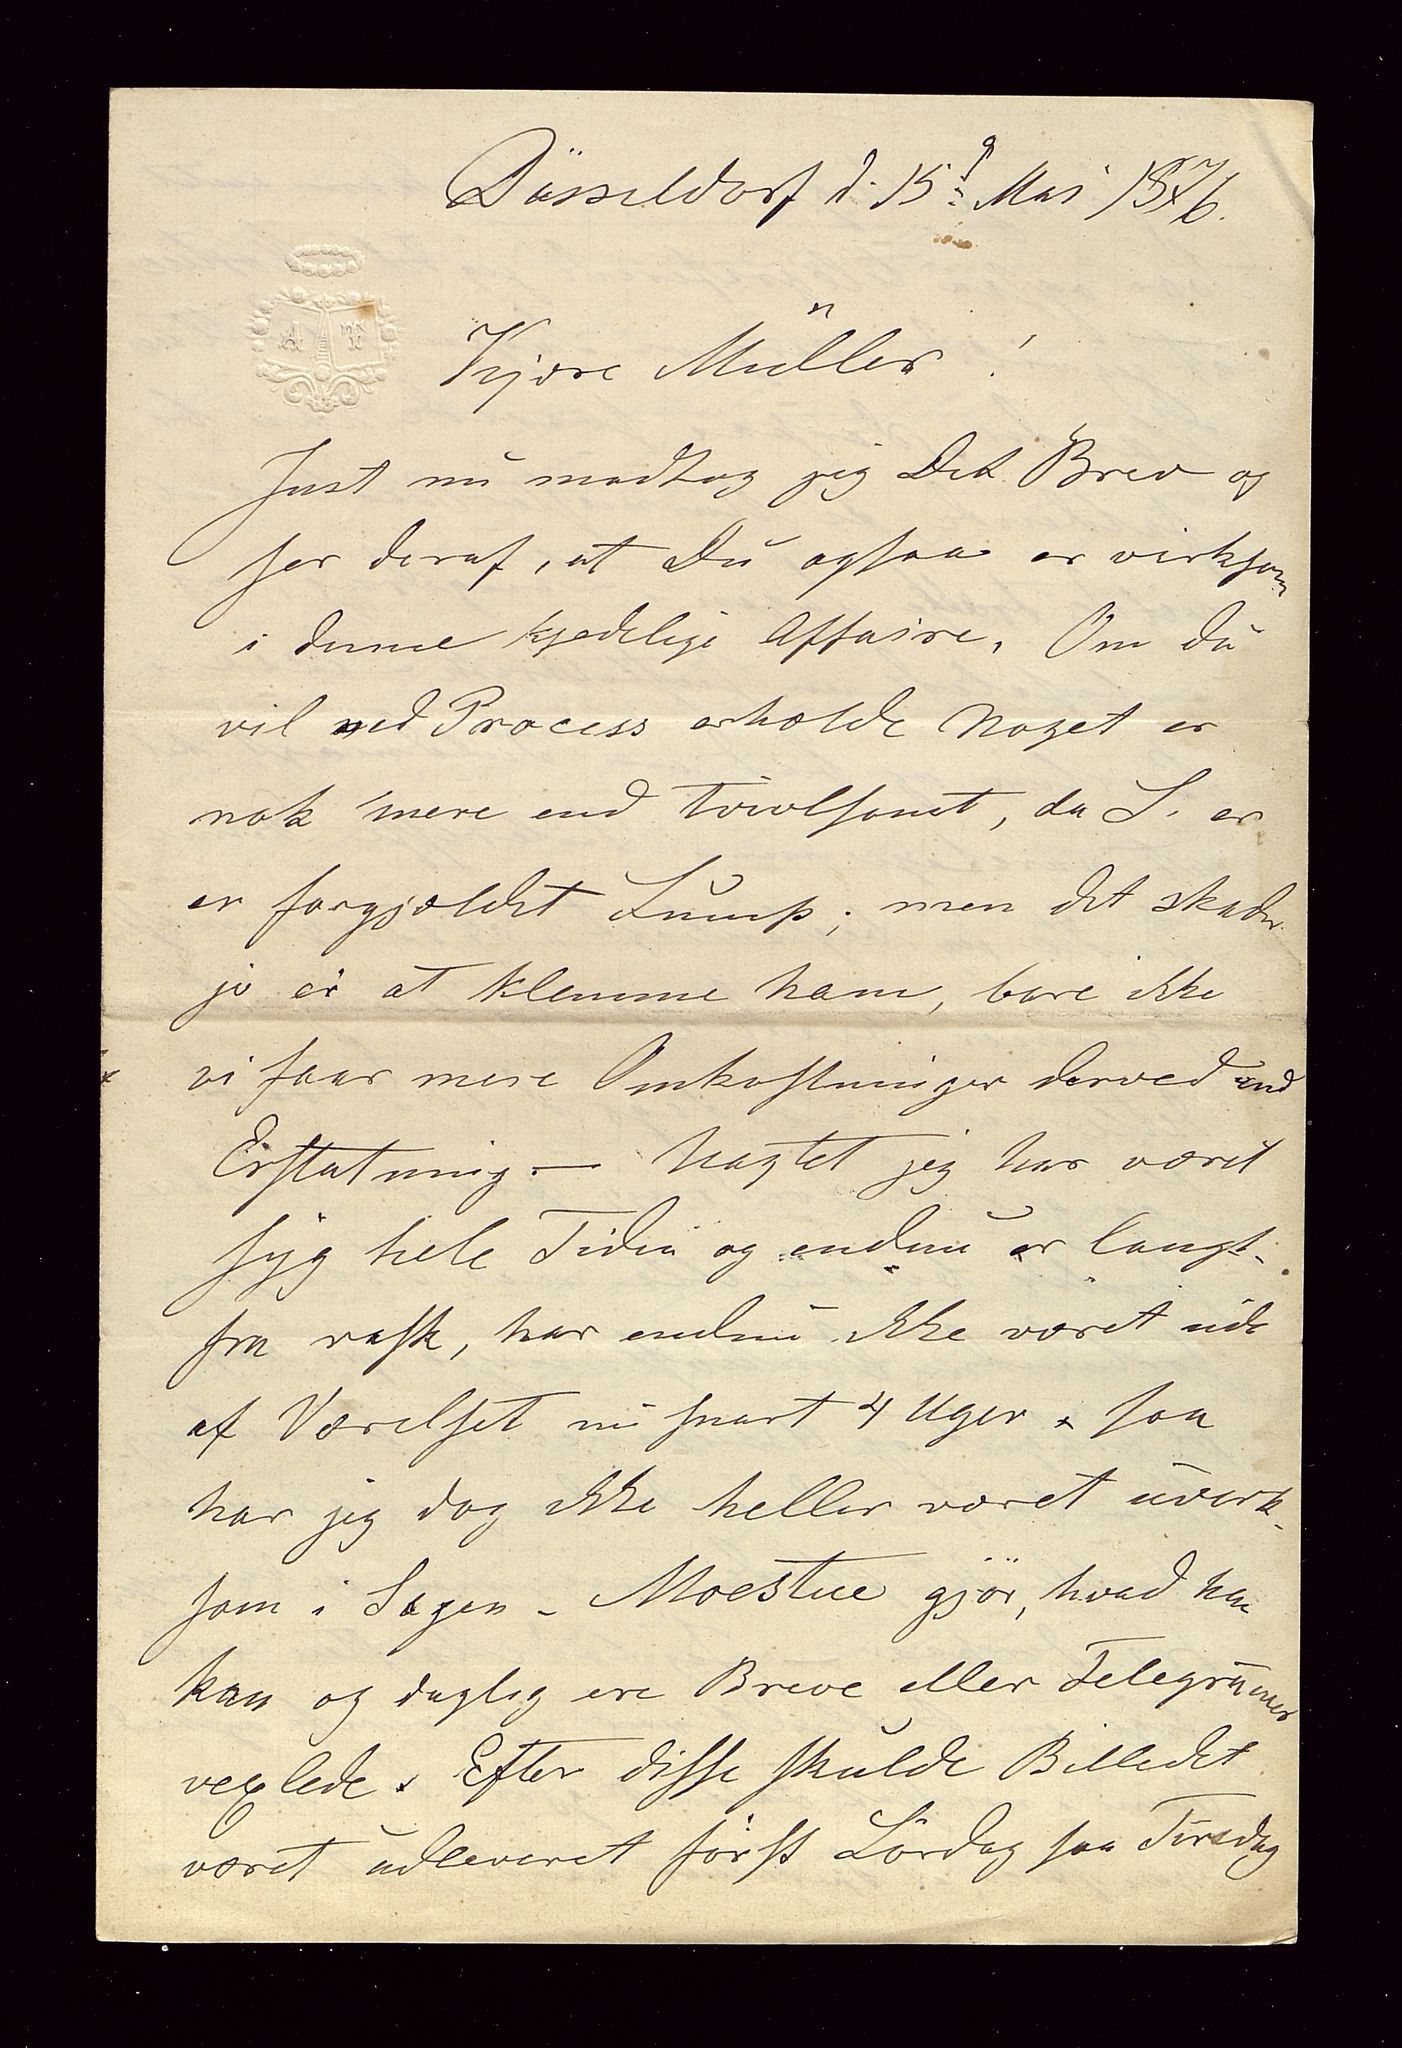 Düsseldorf d. 15d Mai 1876.
A N
Kjære Müller!
Just nu modtog jeg Dit Brev og
ser deraf, at Du ogsaa er virksom
i denne kjedelige Affaire. Om du
vil ved Process erholde Noget er
nok mere end tvivlsomt, da S. er
en forgjældet Lump; men det skader
jo ei at klemme ham, bare ikke
vi faar mere Omkostninger derved end
Erstatning. — Uagtet jeg har været
syg hele Tiden og endnu er langt-
fra rask, har endnu ikke været ude
af Værelset nu snart 4 Uger, saa
har jeg dog ikke heller været uvirk-
som i Sagen - Moestue gjör, hvad han
kan og daglig ere Breve eller Telegrammer
vexlede. Efter disse skulde Billedet
været udleveret först Lördag saa Tirsdag